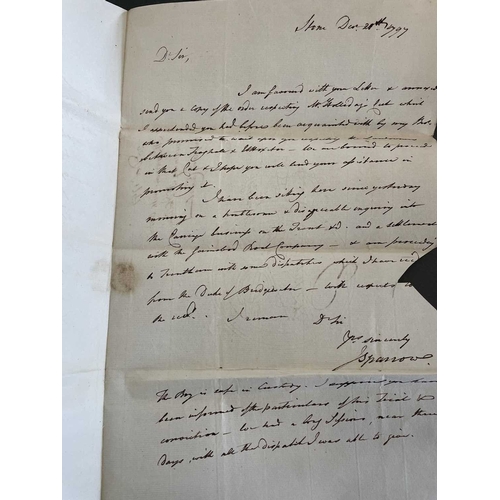 Stone Decr. 20th 1797
Dr Sir,
I am favored with your Letter & annexed
send you a copy of the order respecting Mr
I apprehended you had before been acquainted with by my Bro.
who promised to
between & Uttoxeter – We are bound to proceed
in that & I hope you will lend your assistance in
promoting it.
I have been sitting here some yesterday
morning on a & disagreeable enquiry into
the Carriage business on the Trent &c. and a settlement
with the Gainsbro Boat Company – & am proceeding
to Trentham with some dispatches which I have recd
from the Duke of Bridgewater – with respects to
the
I remain Dr Sir
Yrs sincerely
JSparrow
The Boy is safe in Custody. I suppose you have
been informed of the particulars of his Trial &
conviction – We had a long Sessions, near three
days, with all the dispatch I was able to give.